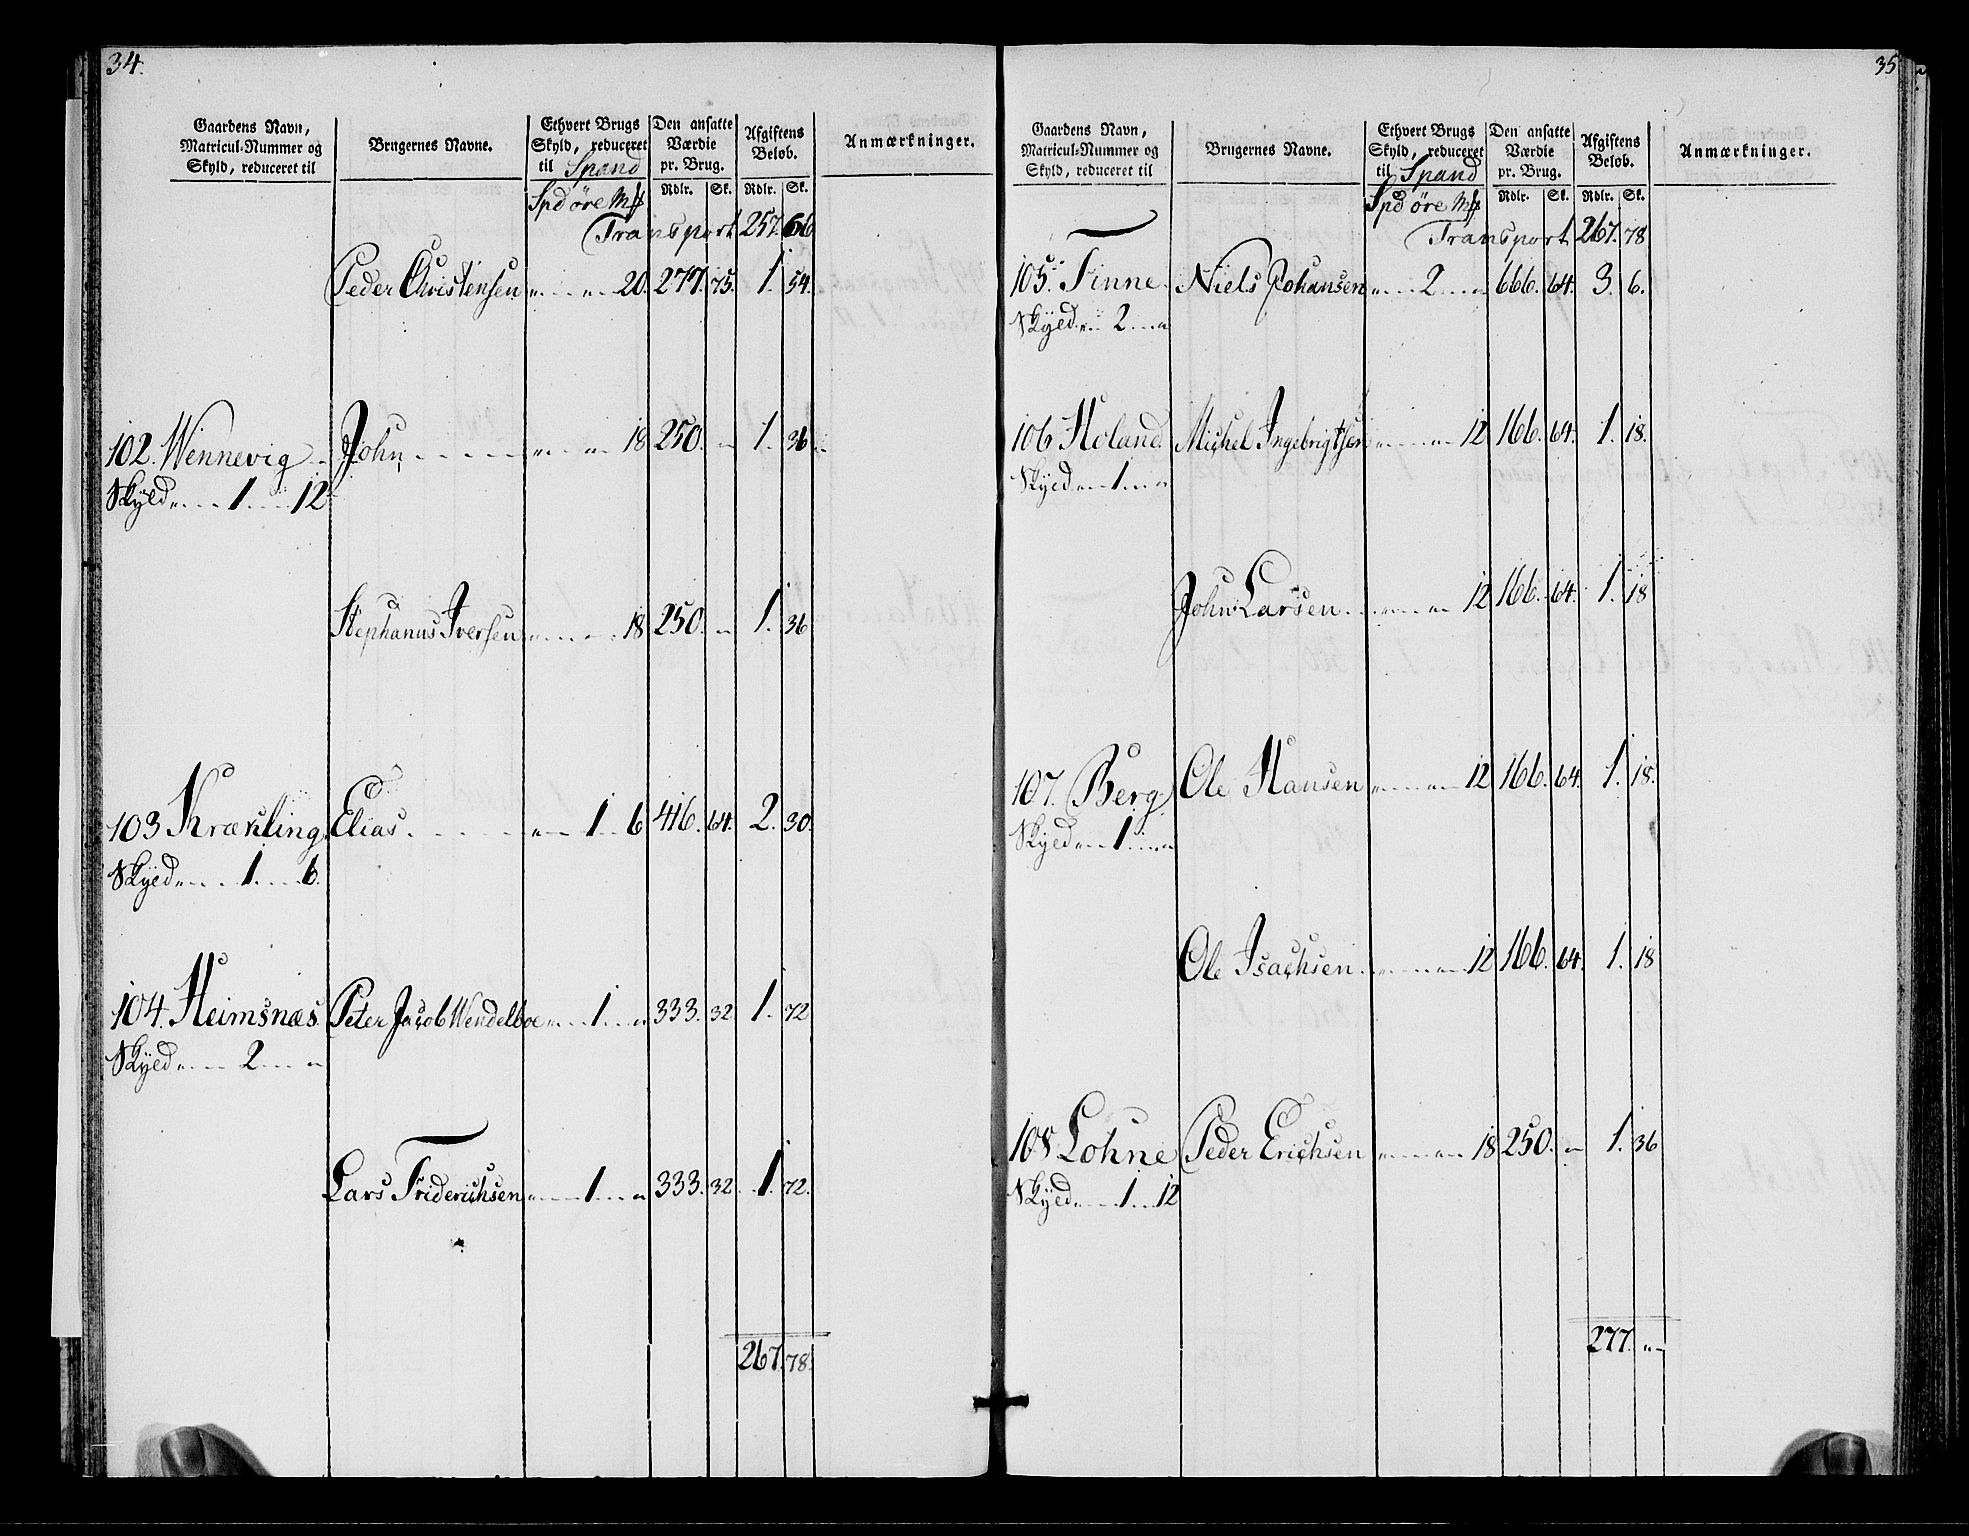 34.
Gaardens Navn, Matricul-Nummer og Skyld, reduceret til | Brugernes Navne. | Ethvert Brugs Skyld, reduceret til Spand | Den ansatte Værdie pr. Brug. | Afgiftens Beløb. | Anmærkninger.
Spd öre | Rdlr. | Sk. | Rdlr. | Sk.
Transport 257. 66
Peder Christensen „ „ 20. 277. 75. 1. 54.
102. Wennevig John „ „ 18 250. „ 1. 36
Skyld „ 1 12
Stephanus Iversen „ „ 18 250. „ 1. 36
103 Kræxling Elias „ 1 6 416. 64. 2. 30.
Skyld „ 1 6.
104. Heimsnæs Peter Jacob Wendelboe „ 1 „ 333. 32 1. 72
Skyld „ 2 „
Lars Friderichsen „ 1 „ 333. 32 1. 72.
267. 78.
35
Gaardens Navn, Matricul-Nummer og Skyld, reduceret til | Brugernes Navne. | Ethvert Brugs Skyld, reduceret til Spand | Den ansatte Værdie pr. Brug. | Afgiftens Beløb. | Anmærkninger.
Spd öre | Rdlr. | Sk. | Rdlr. | Sk.
Transport 267. 78
105. Finne Niels Johansen „ 2 „ 666. 64. 3. 6.
Skyld „ 2 „
106 Holand Michel Ingebrigtsen „ „ 12 166. 64. 1. 18.
Skyld „ 1 „
John Larsen „ „ 12 166. 64. 1. 18
107. Berg Ole Hansen „ „ 12 166. 64. 1. 18.
Skyld „ 1 „
Ole Isachsen „ „ 12 166. 64. 1. 18
108 Lohne Peder Erichsen „ „ 18 250. „ 1. 36
Skyld „ 1 12
277. „